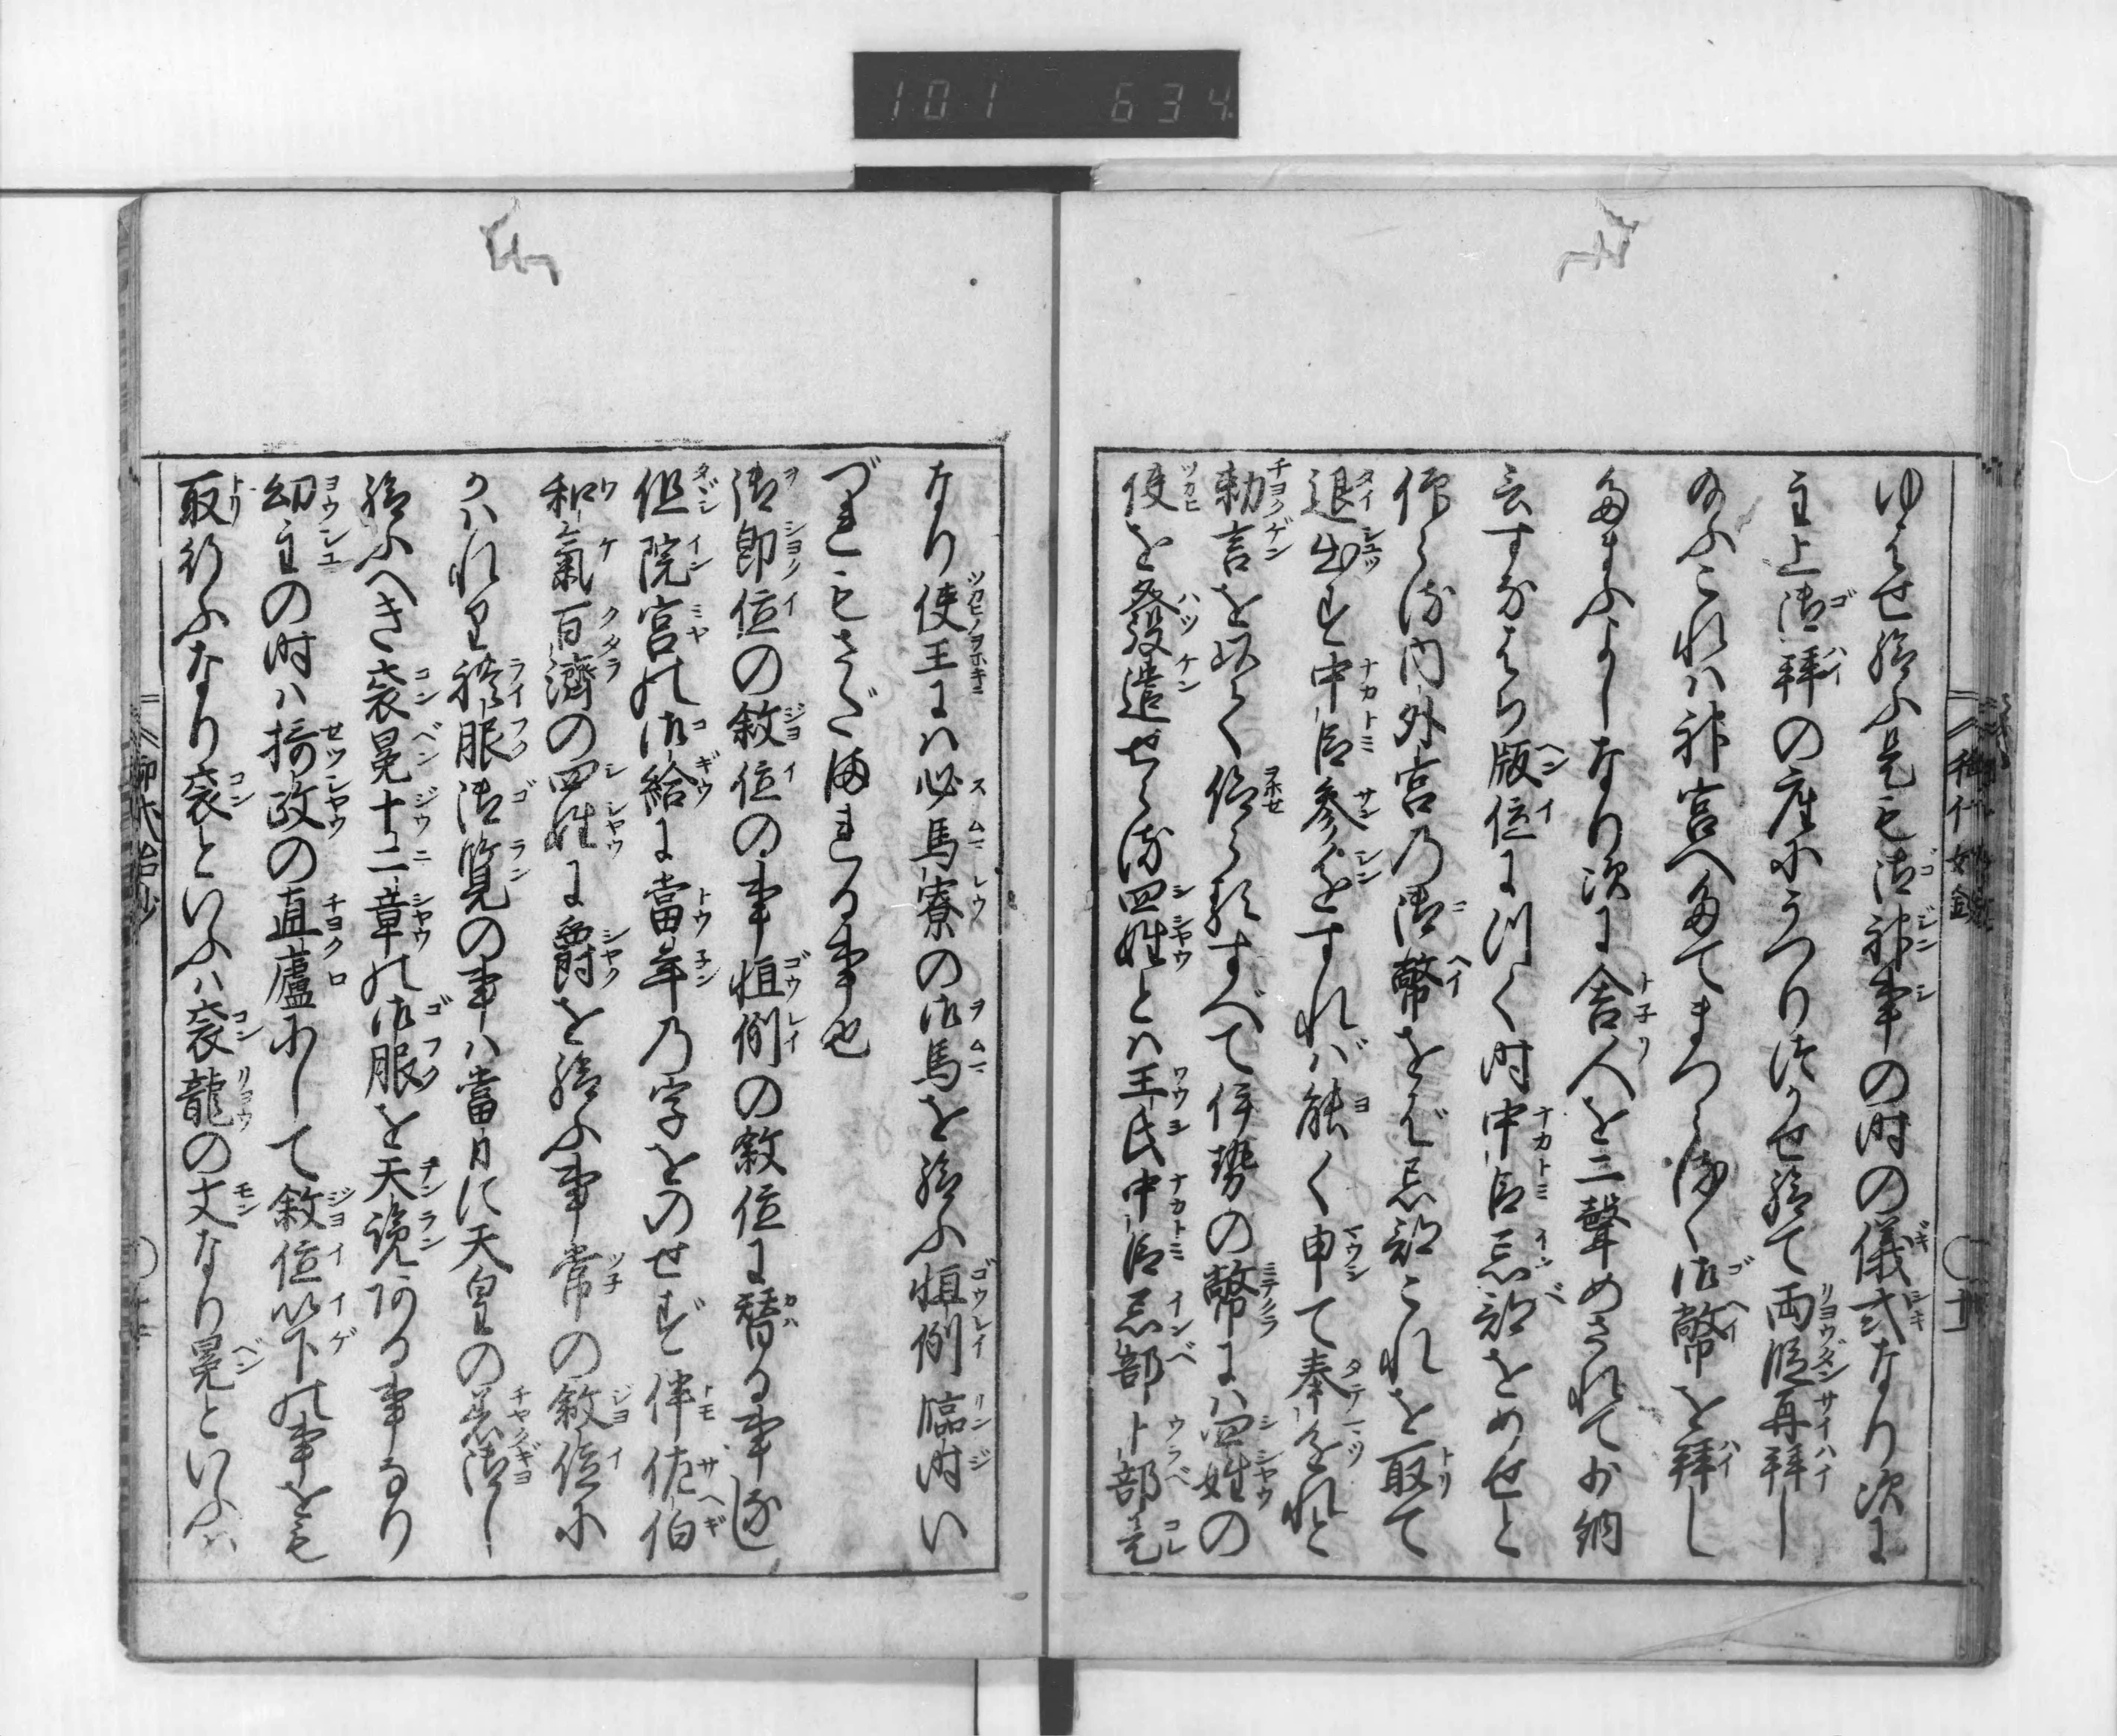 ゆはせ給ふ是も御神事の時の儀式なり次に
主上御拝の座にうつりつかせ給て両段再拝し
給ふこれハ神宮へ奉てまつらるく御幣を拝し
たまふよしなり次に舎人を二聲めされて少納
言すなはち版位に付く時中臣忌部をめせと
仰らる内外宮乃御幣をば忌部これを取て
退出す中臣参進すれば能く申て奉進れと
勅言を以て仰らるすべて伊勢の幣にハ四姓の
使を發遣せらる四姓とハ王氏中臣忌部卜部是
なり使王にハ必馬寮の御馬を給ふ恒例臨時い
づれもさだまれる事也
御即位の敘位の事恒例の敘位に替る事逐
但院宮の御給に當年乃字をのせず伴佐伯
和氣百濟の四姓に爵を給ふ事常の敘位に
かハれり禮服御覧の事ハ當月に天皇の着御し
給ふへき袞冕十二章の御服を天覧ある事なり
幼主の時ハ摂政の直廬にして敘位以下の事を
取行ふなり袞といふハ袞龍の文なり冕といふハ
101 634